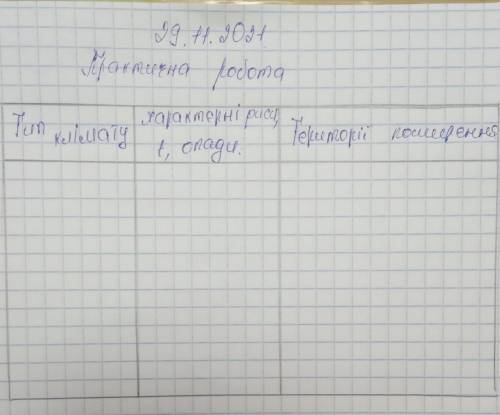 29.11.2021
Практична робота
Тип клімату
характерні риси, t, опади.
Території поширення